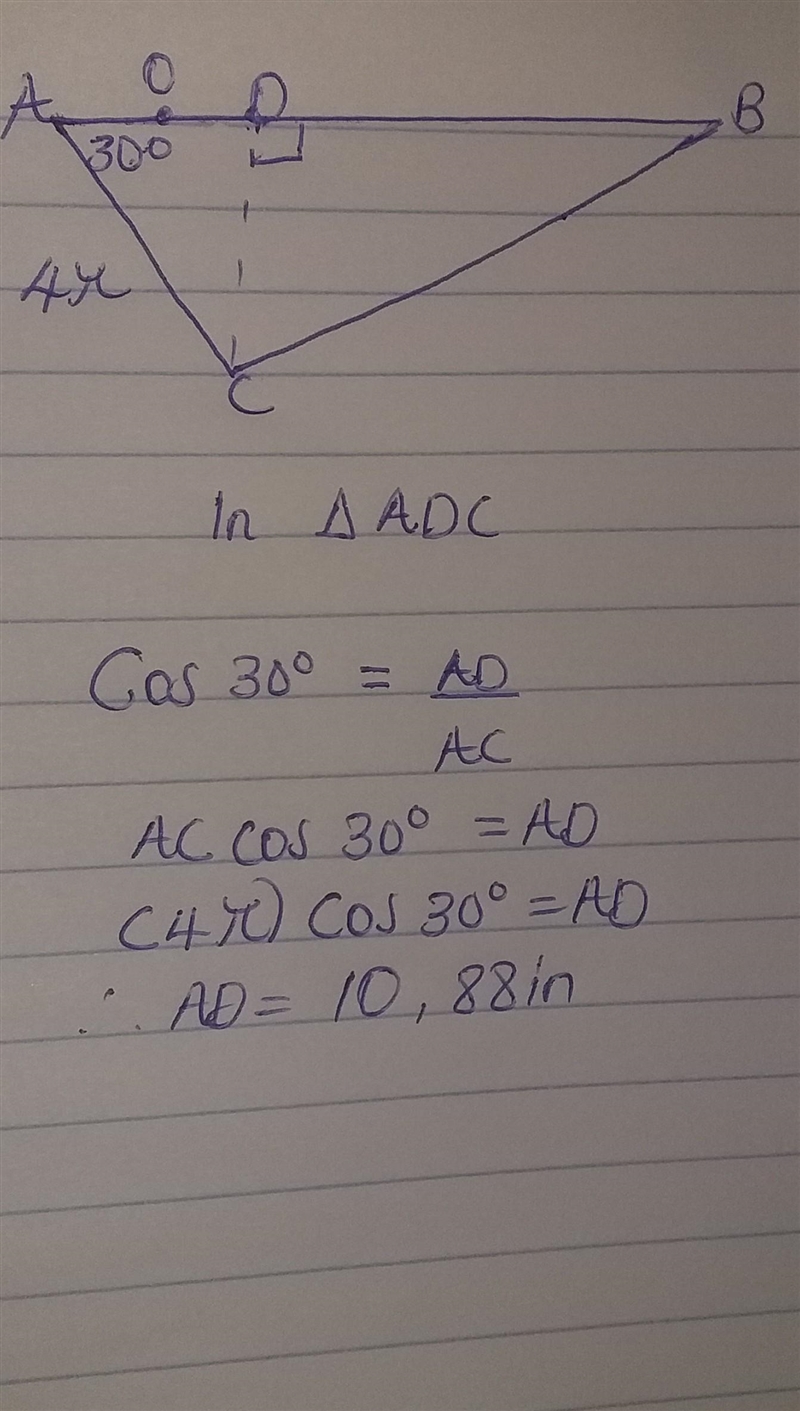 O
A D B
30°
4π
C
In Δ ADC
Cos 30° = AD
AC
AC cos 30° = AD
(4π) cos 30° = AD
∴ AD = 10,88in